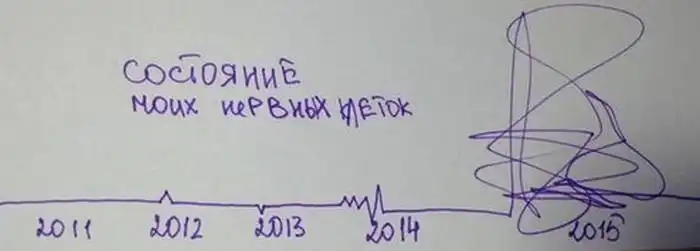 СОСТОЯНИЕ
МОИХ НЕРВНЫХ КЛЕТОК
2011 2012 2013 2014 2015